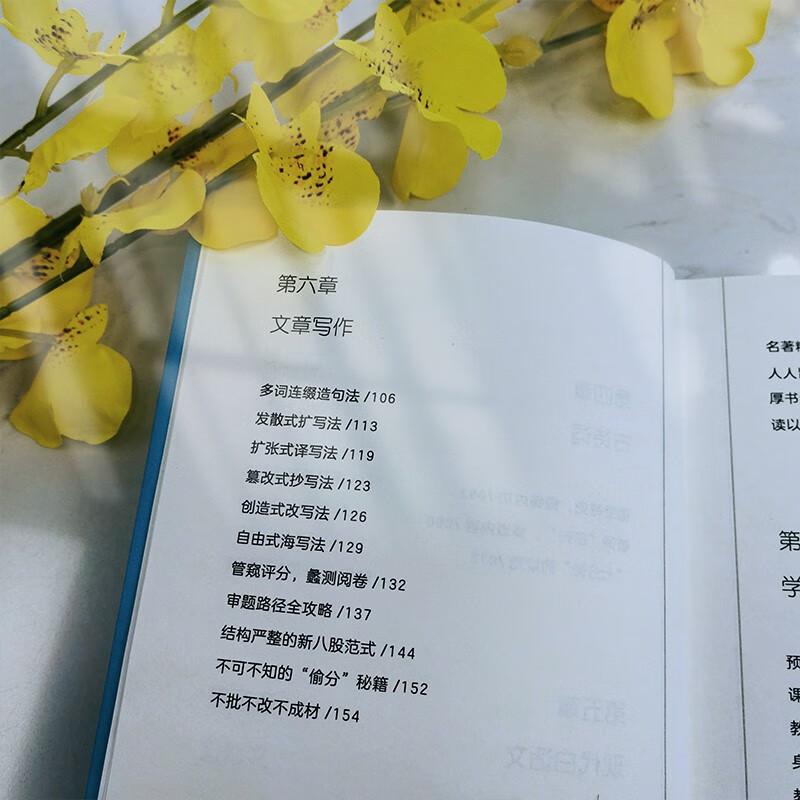 第六章
文章写作
多词连缀造句法 /106
发散式扩写法 /113
扩张式译写法 /119
篡改式抄写法 /123
创造式改写法 /126
自由式海写法 /129
管窥评分，蠡测阅卷 /132
审题路径全攻略 /137
结构严整的新八股范式 /144
不可不知的“偷分”秘籍 /152
不批不改不成材 /154
名著
人人
厚书
读以
第
学
预
课
教
身